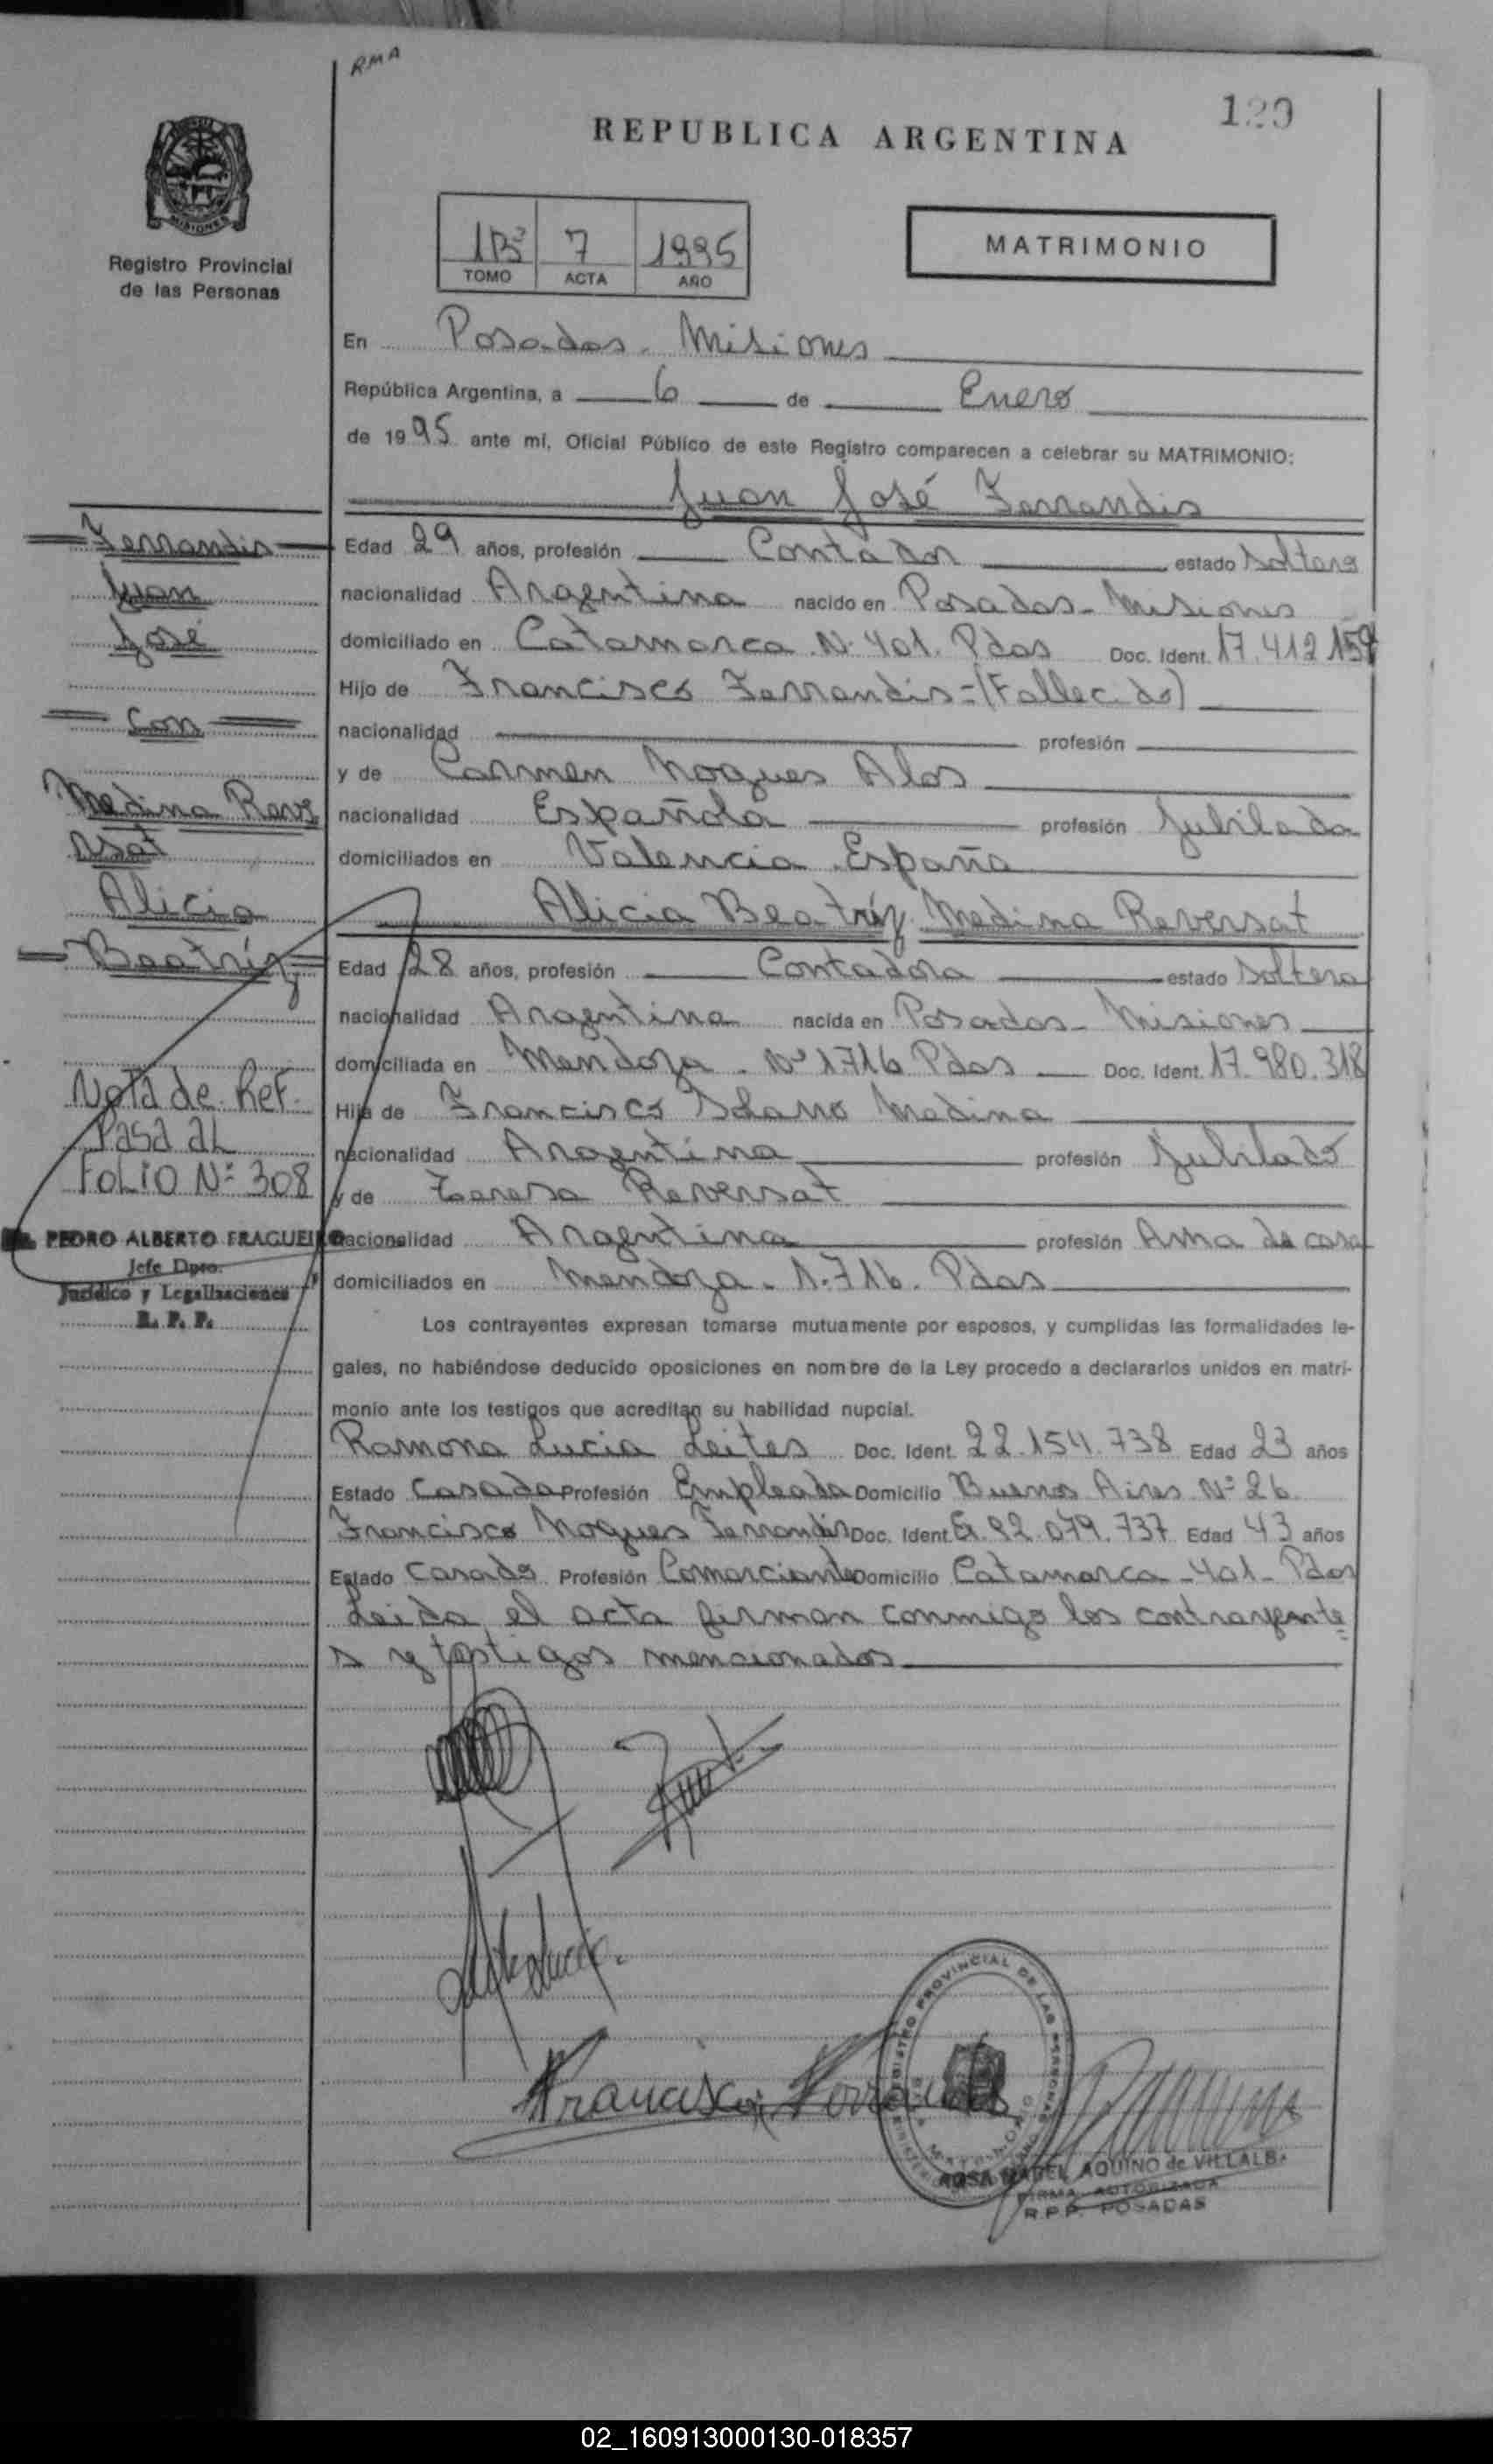 RMA
REPUBLICA ARGENTINA
MISIONES
Registro Provincial
de las Personas
7 1995
TOMO ACTA AÑO
MATRIMONIO
En Posadas - Misiones
República Argentina, a 6 de Enero
de 1995 ante mí, Oficial Público de este Registro comparecen a celebrar su MATRIMONIO:
Juan José Ferrandis
Ferrandis
Juan
José
Con
Medina Rever
rsat
Alicia
Beatríz
Nota de Ref.
Pasa al
FOLIO Nº 308
PEDRO ALBERTO FRAGUEIRO
Jefe Dpto.
Jurídico y Legalizaciones
R. P. P.
Edad 29 años, profesión Contador estado Soltero
nacionalidad Argentina nacido en Posadas - Misiones
domiciliado en Catamarca N. 401. Pdas Doc. Ident. 17.412.159
Hijo de Francisco Ferrandis=(Fallecido)
nacionalidad profesión
y de Carmen Nogues Alos
nacionalidad Española profesión Jubilada
domiciliados en Valencia España
Alicia Beatríz Medina Reversat
Edad 28 años, profesión Contadora estado Soltera
nacionalidad Argentina nacida en Posadas - Misiones
domiciliada en Mendoza - Nº 1716 Pdas Doc. Ident. 17.980.318
Hija de Francisco Solano Medina
nacionalidad Argentina profesión Jubilado
y de Teresa Reversat
nacionalidad Argentina profesión Ama de casa
domiciliados en Mendoza - 1.716. Pdas
Los contrayentes expresan tomarse mutuamente por esposos, y cumplidas las formalidades le-
gales, no habiéndose deducido oposiciones en nombre de la Ley procedo a declararlos unidos en matri-
monio ante los testigos que acreditan su habilidad nupcial.
Ramona Lucia Leites Doc. Ident. 22.154.738 Edad 23 años
Estado Casada Profesión Empleada Domicilio Buenos Aires Nº 26
Francisco Nogues Ferrandis Doc. Ident. 92.079.737 Edad 43 años
Estado Casado Profesión Comerciante Domicilio Catamarca - 401 - Pdas
Leida el acta firman conmigo los contrayente
s y testigos mencionados
Francisco
REGISTRO PROVINCIAL DE LAS PERSONAS
ROSA MABEL AQUINO de VILLALBA
FIRMA AUTORIZADA
R.P.P. POSADAS
02_160913000130-018357